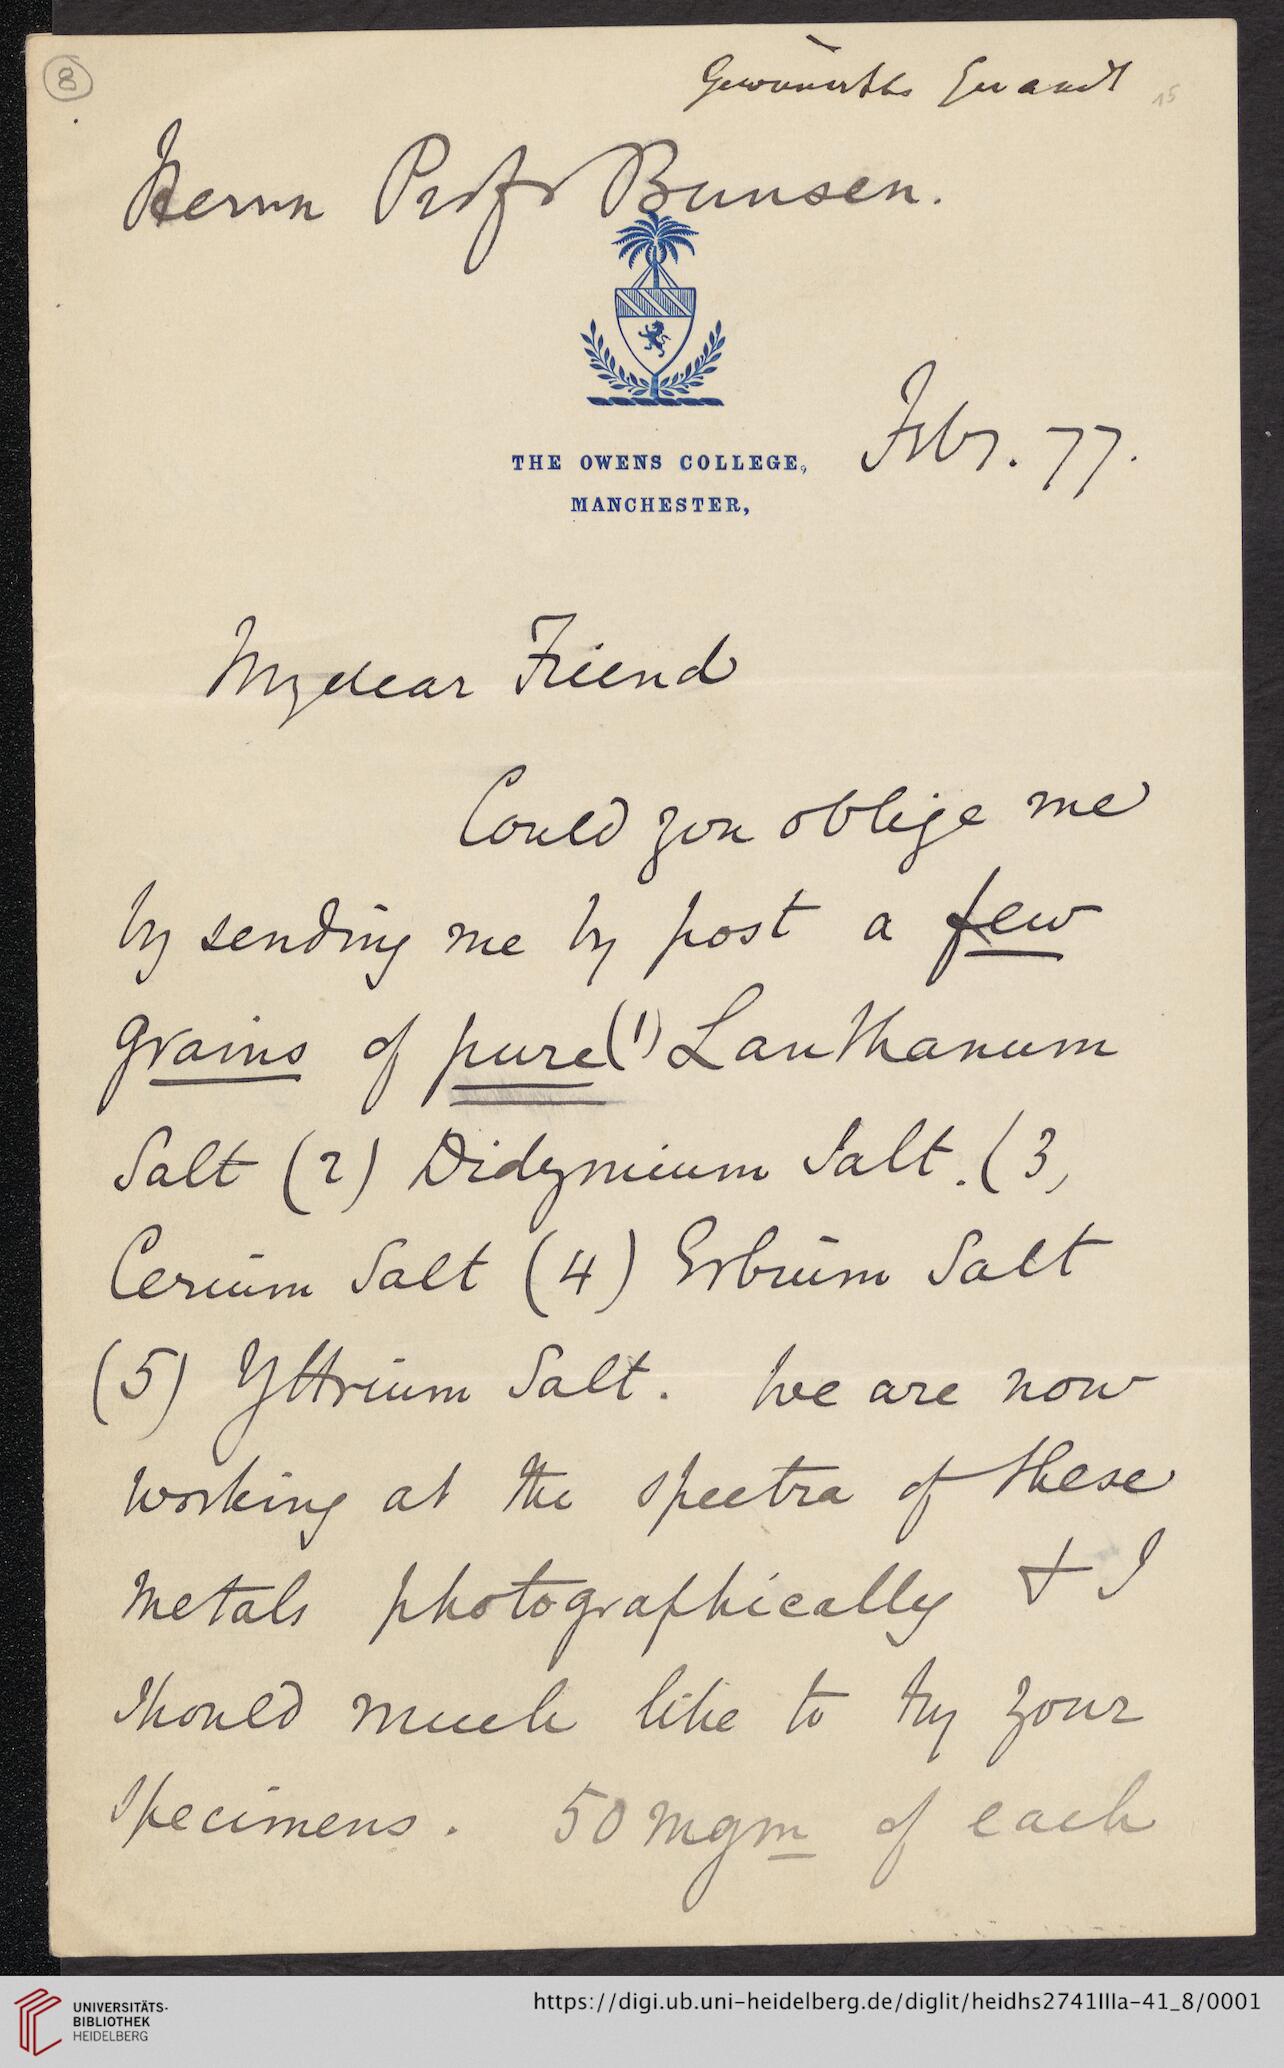 8
Gewünschtes Gesandt
15
Herrn Profr Bunsen.
THE OWENS COLLEGE,
MANCHESTER,
Febr. 77.
My dear Friend
Could you oblige me
by sending me by post a few
grains of pure (1) Lanthanum
Salt (2) Didymium Salt. (3,
Cerium Salt (4) Erbium Salt
(5) Yttrium Salt. We are now
working at the spectra of these
metals photographically & I
should much like to try your
specimens. 50 mgm of each
UNIVERSITÄTS-
BIBLIOTHEK
HEIDELBERG
https://digi.ub.uni-heidelberg.de/diglit/heidhs2741IIIa-41_8/0001